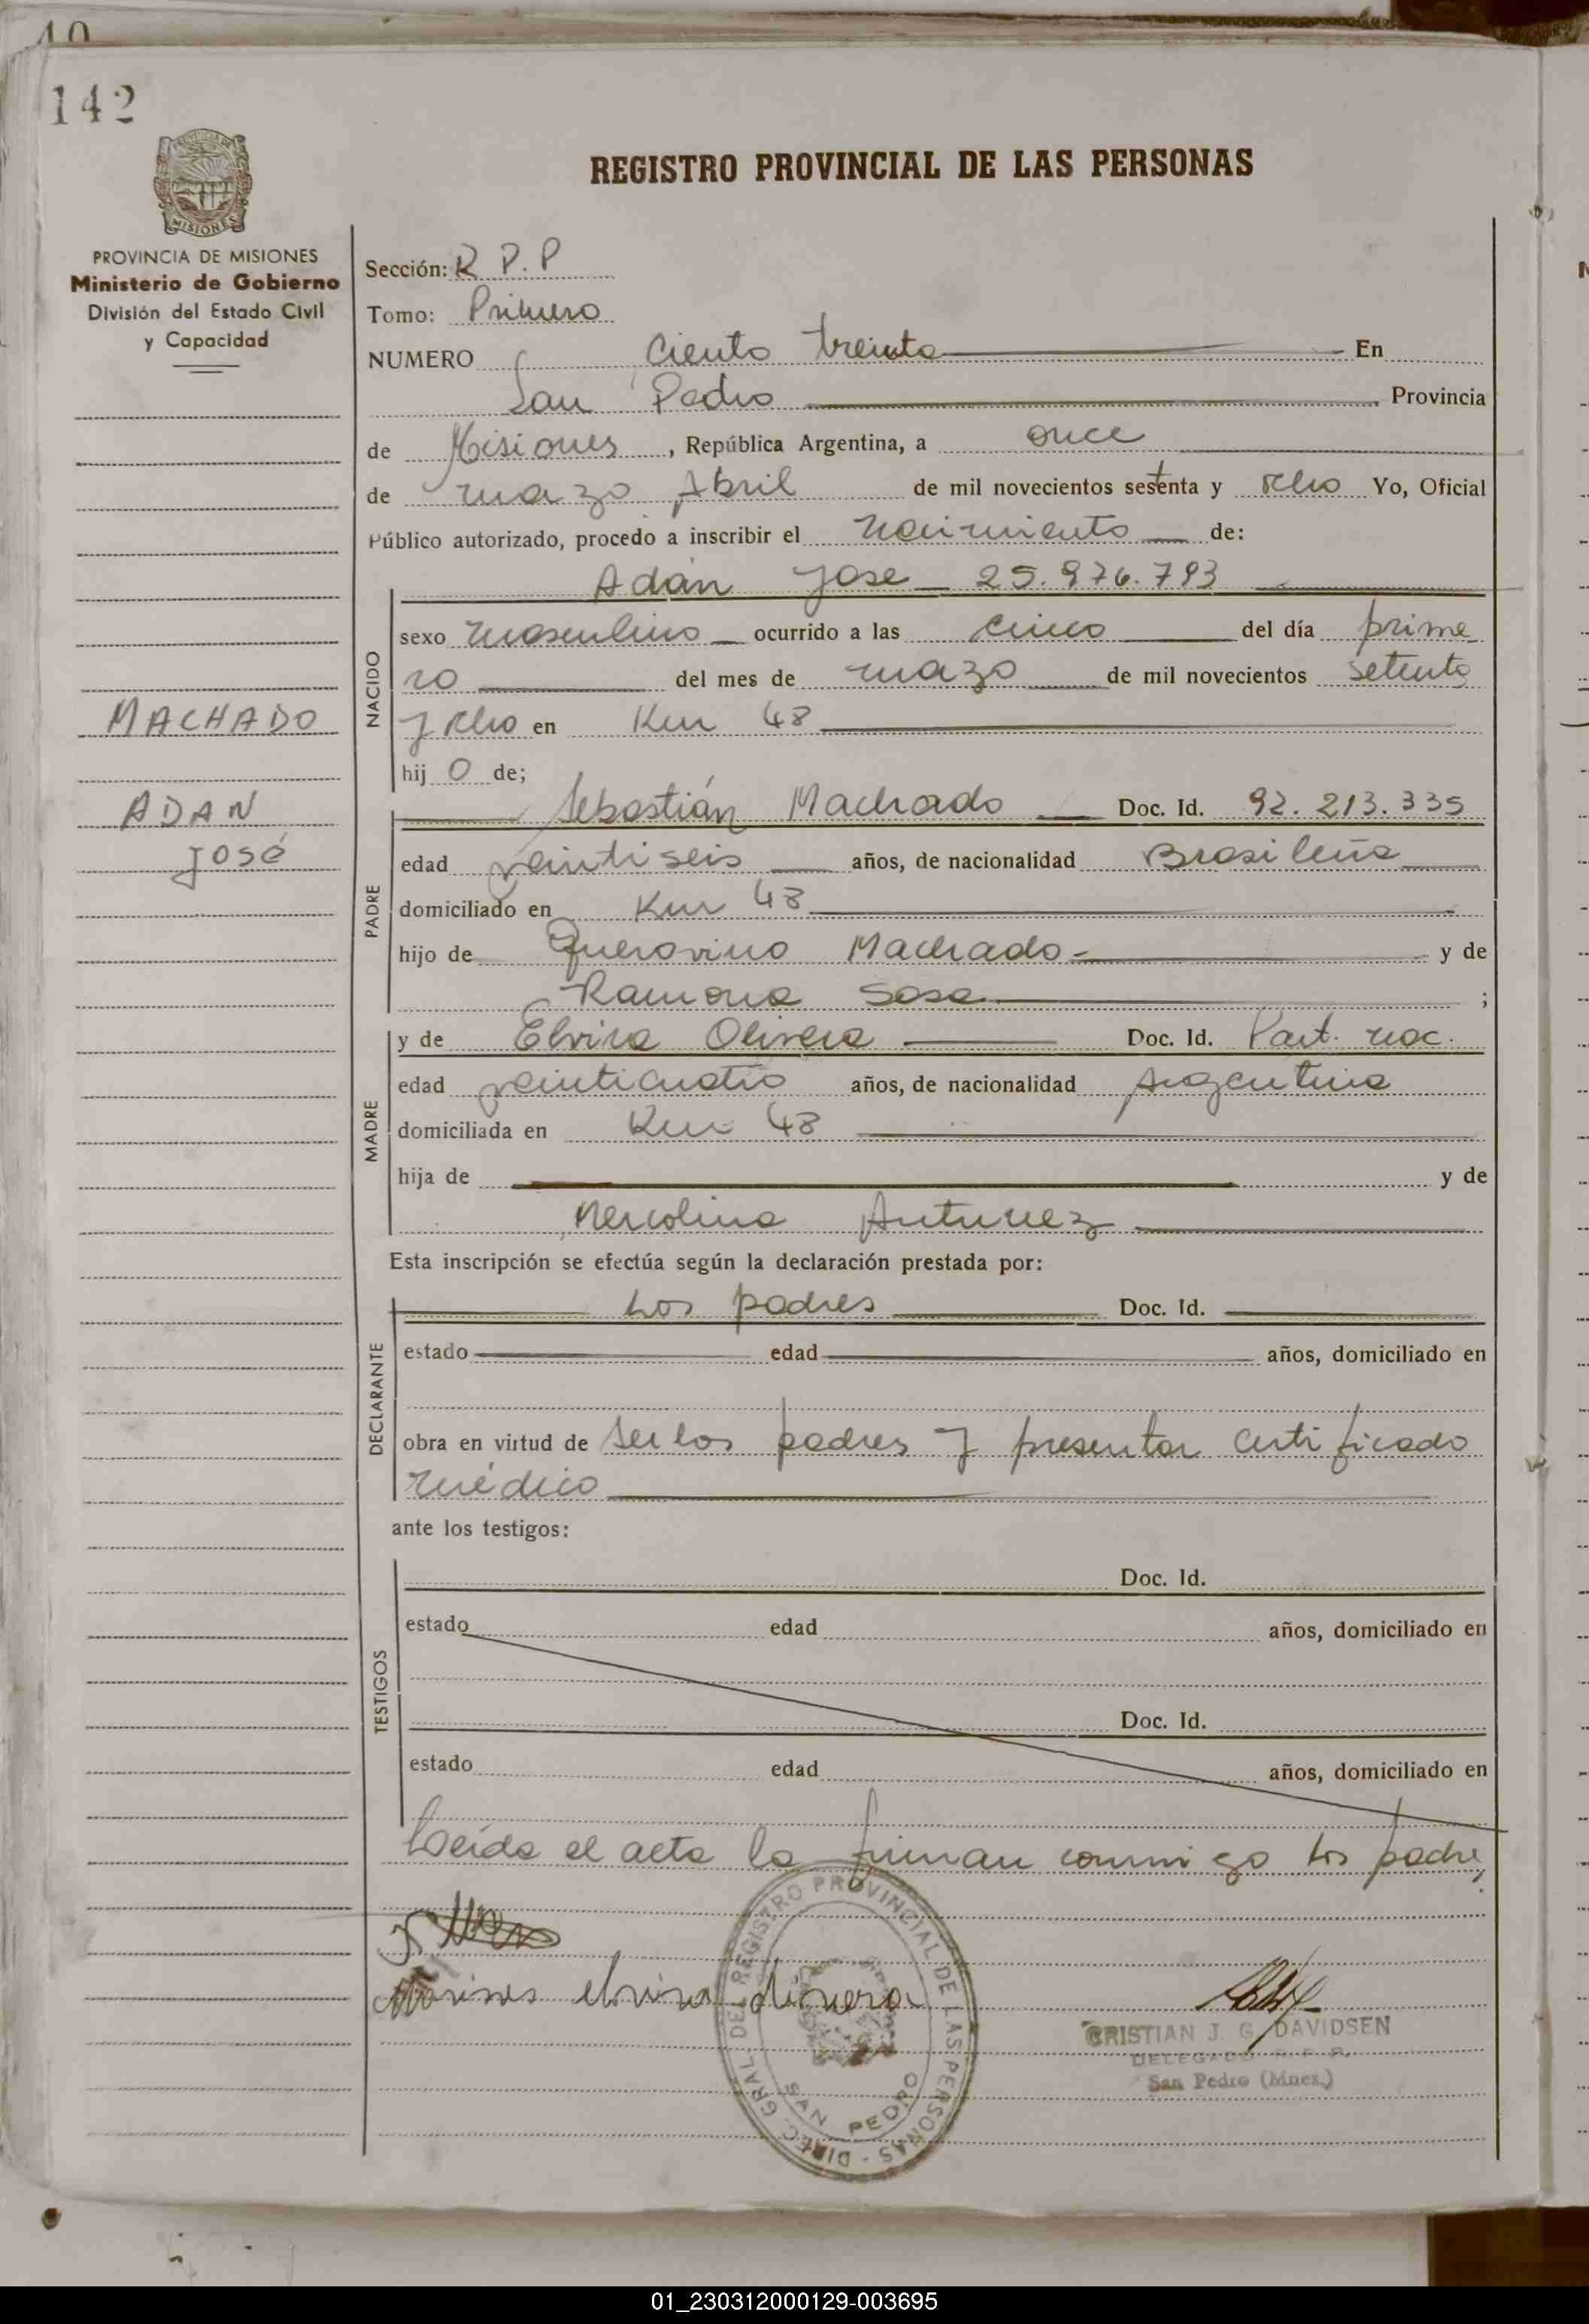 10
142
REGISTRO PROVINCIAL DE LAS PERSONAS
MISIONES
PROVINCIA DE MISIONES
Ministerio de Gobierno
División del Estado Civil
y Capacidad
Sección: R P. P
Tomo: Primero
NUMERO Ciento treinta En
San Pedro Provincia
de Misiones, República Argentina, a once
de marzo Abril de mil novecientos setenta y ocho Yo, Oficial
Público autorizado, procedo a inscribir el nacimiento de:
Adán José 25.976.793
NACIDO
sexo masculino ocurrido a las cinco del día prime
ro del mes de marzo de mil novecientos setenta
y ocho en Km 48
hij o de;
MACHADO
ADAN
José
PADRE
Sebastián Machado Doc. Id. 92.213.335
edad veintiseis años, de nacionalidad Brasileña
domiciliado en Km 48
hijo de Querovino Machado y de
Ramona Sosa ;
MADRE
y de Elvira Olivera Doc. Id. Part. nac.
edad veinticuatro años, de nacionalidad Argentina
domiciliada en Km 48
hija de y de
Mercolina Antunez
Esta inscripción se efectúa según la declaración prestada por:
DECLARANTE
Los padres Doc. Id.
estado edad años, domiciliado en
obra en virtud de ser los padres y presentar certificado
médico
ante los testigos:
TESTIGOS
Doc. Id.
estado edad años, domiciliado en
Doc. Id.
estado edad años, domiciliado en
Leída el acta la firman conmigo los padres
elvira olivera
DIREC. GRAL. DEL REGISTRO PROVINCIAL DE LAS PERSONAS -
SAN PEDRO
CRISTIAN J. G. DAVIDSEN
DELEGADO R. P. P.
San Pedro (Mnes.)
01_230312000129-003695